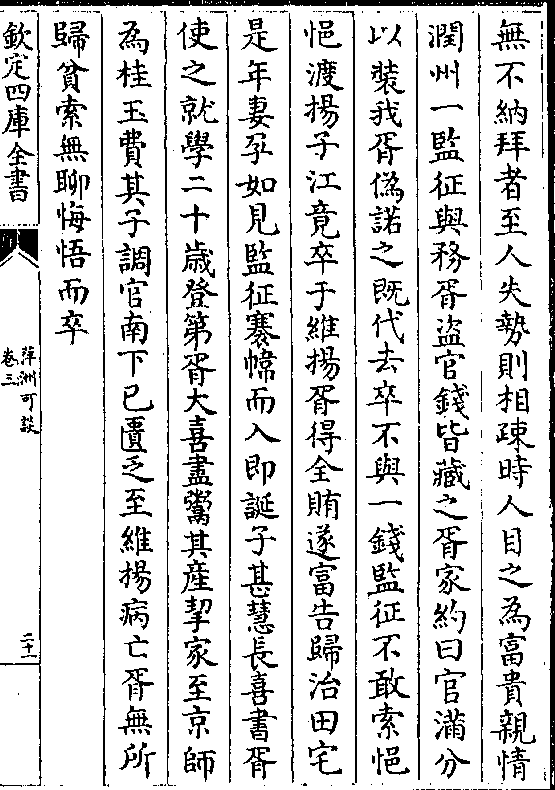 無不納拜者至人失勢則相疎時人目之為富貴親情
潤州一監征與務胥盜官錢皆藏之胥家約曰官滿分
以裝我胥偽諾之既代去卒不與一錢監征不敢索悒
悒渡揚子江竟卒于維揚胥得全賄遂富告歸治田宅
是年妻孕如見監征褰幃而入即誕子甚慧長喜書胥
使之就學二十歲登第胥大喜盡鬻其產挈家至京師
為桂玉費其子調官南下已匱乏至維揚病亡胥無所
歸貧索無聊悔悟而卒
欽定四庫全書
萍洲可談
卷三
二十一